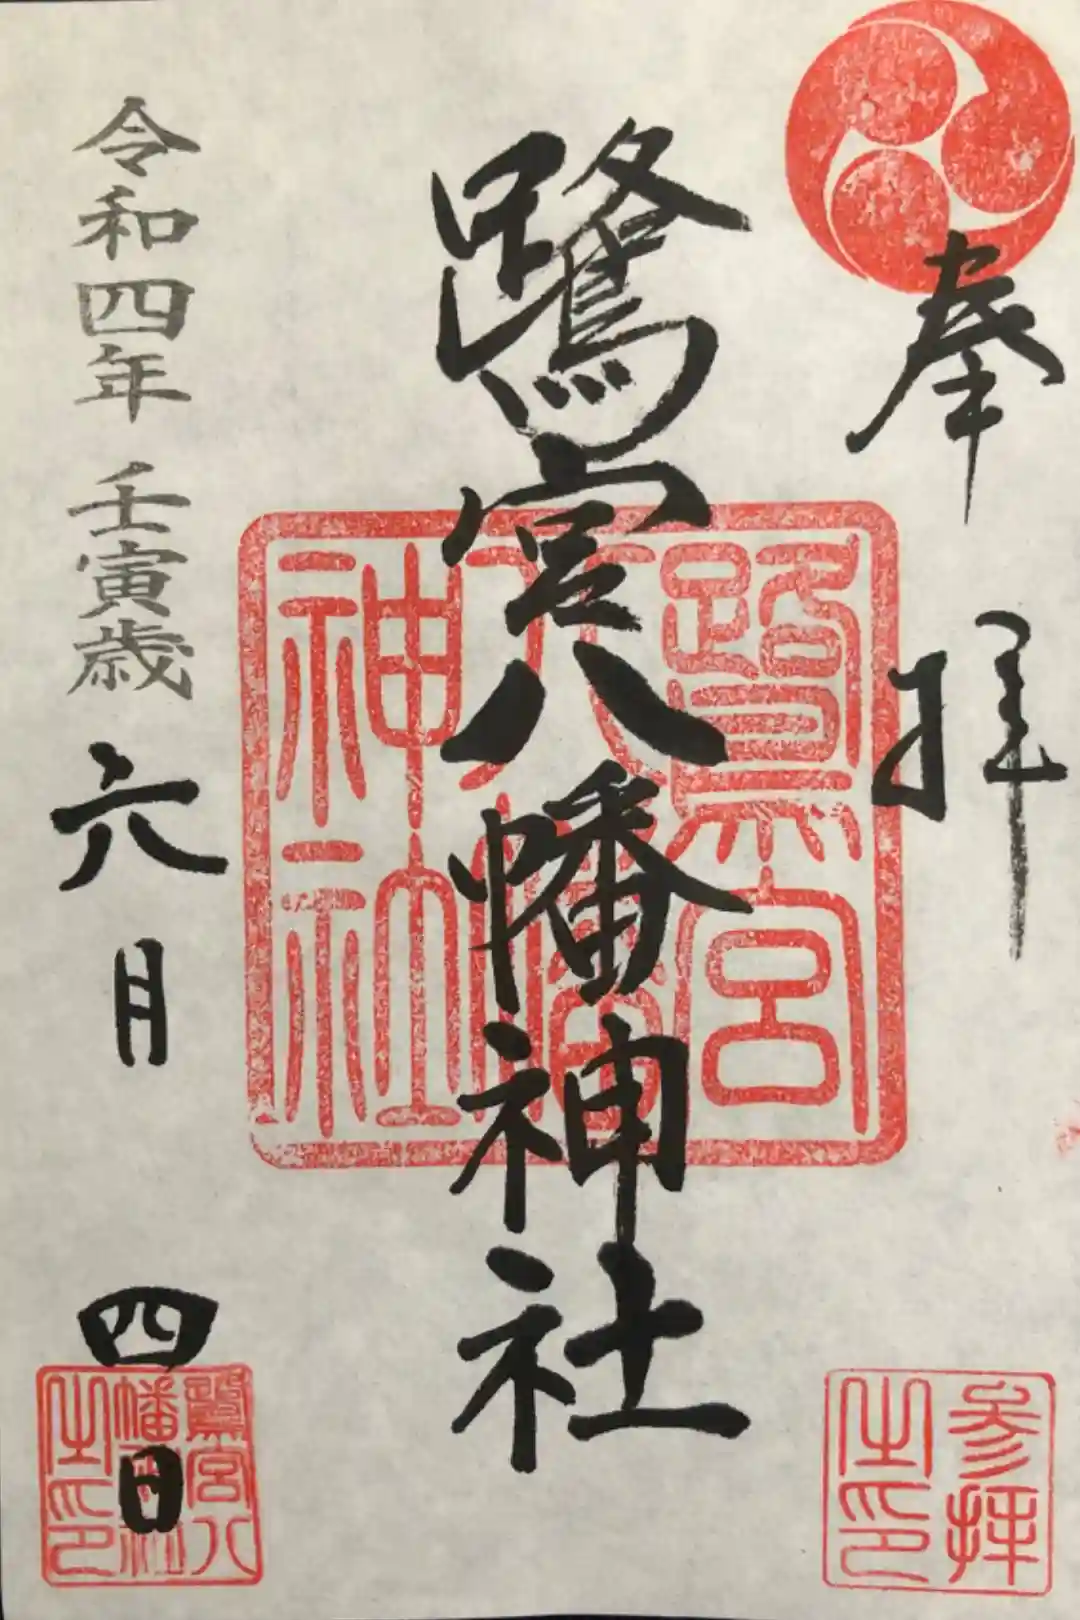 奉拝
参拝
之印
鷺宮八幡神社
鷺宮
八幡
神社
令和四年 壬寅歳 六月 四日
鷺宮八
幡神社
之印